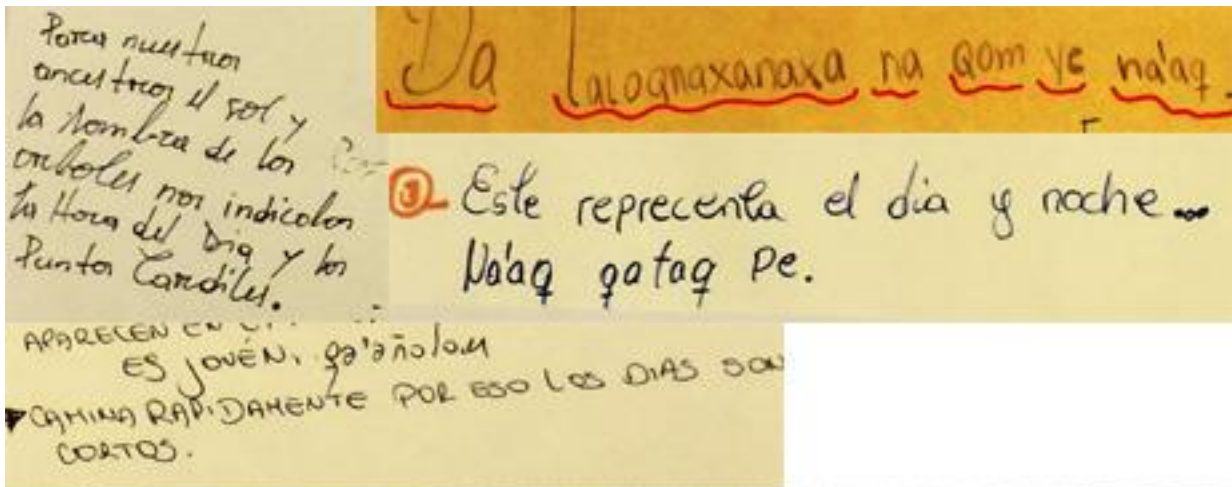 Para nuestros
ancestros el sol y
la sombra de los
arboles nos indicaban
la Hora del Dia y los
Puntos Cardiles.
Da lalognaxanaxa na qom ye na'aq.
① Este reprecenta el dia y noche...
Na'aq qataq pe.
APARECEN EN
ES JOVEN, qa'añolou
CAMINA RAPIDAMENTE POR ESO LOS DIAS SON
CORTOS.